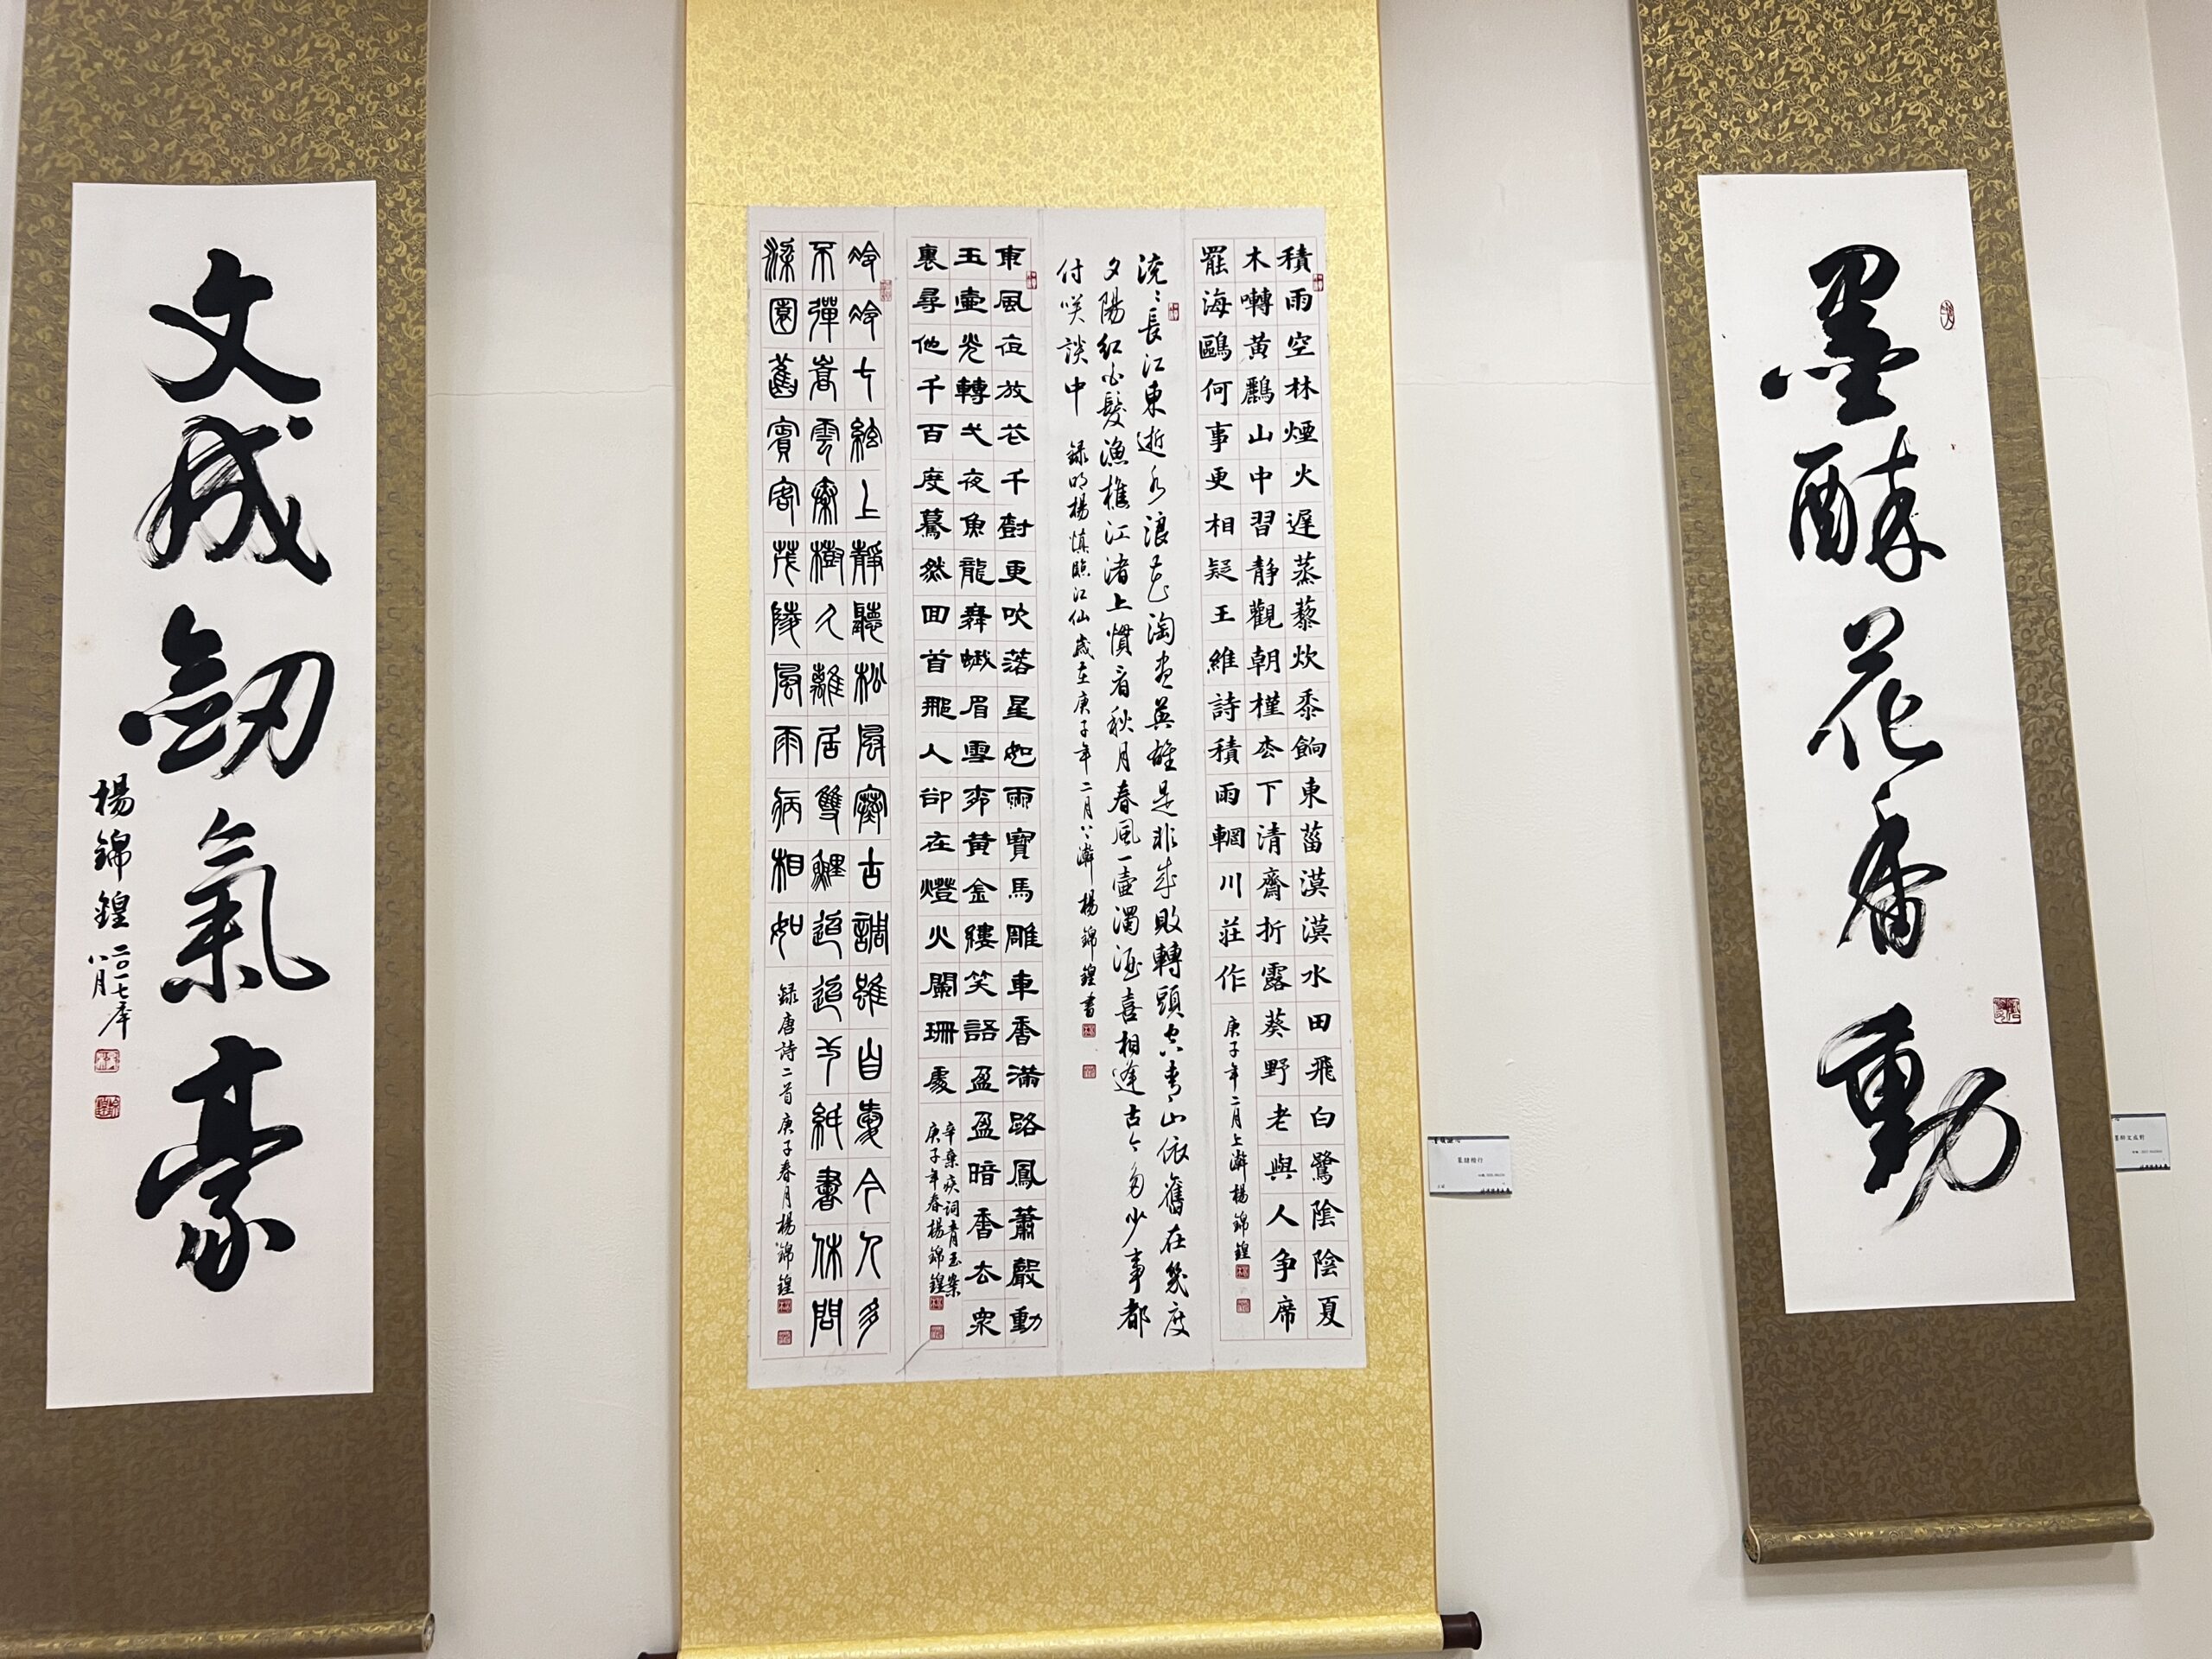 墨醉花香動
積雨空林煙火遲蒸藜炊黍餉東菑漠漠水田飛白鷺陰陰夏
木囀黃鸝山中習靜觀朝槿松下清齋折露葵野老與人爭席
罷海鷗何事更相疑王維詩積雨輞川莊作
庚子年二月上澣楊錦鍠
滾〻長江東逝水浪花淘盡英雄是非成敗轉頭空青山依舊在幾度
夕陽紅白髮漁樵江渚上慣看秋月春風一壺濁酒喜相逢古今多少事都
付笑談中 錄明楊慎臨江仙歲在庚子年二月上澣楊錦鍠書
東風夜放花千樹更吹落星如雨寶馬雕車香滿路鳳簫聲動
玉壺光轉弌夜魚龍舞蛾眉雪柳黃金縷笑語盈盈暗香去眾
裏尋他千百度驀然回首那人卻在燈火闌珊處
辛棄疾詞青玉案
庚子年春楊錦鍠
泠泠七絃上靜聽松風寒古調雖自愛今人多
不彈嵩雲秦樹久離居雙鯉迢迢一紙書休問
梁園舊賓客茂陵風雨病相如
錄唐詩二首庚子春月楊錦鍠
篆隸楷行
文成劒氣豪
楊錦鍠 二〇一七年
八月